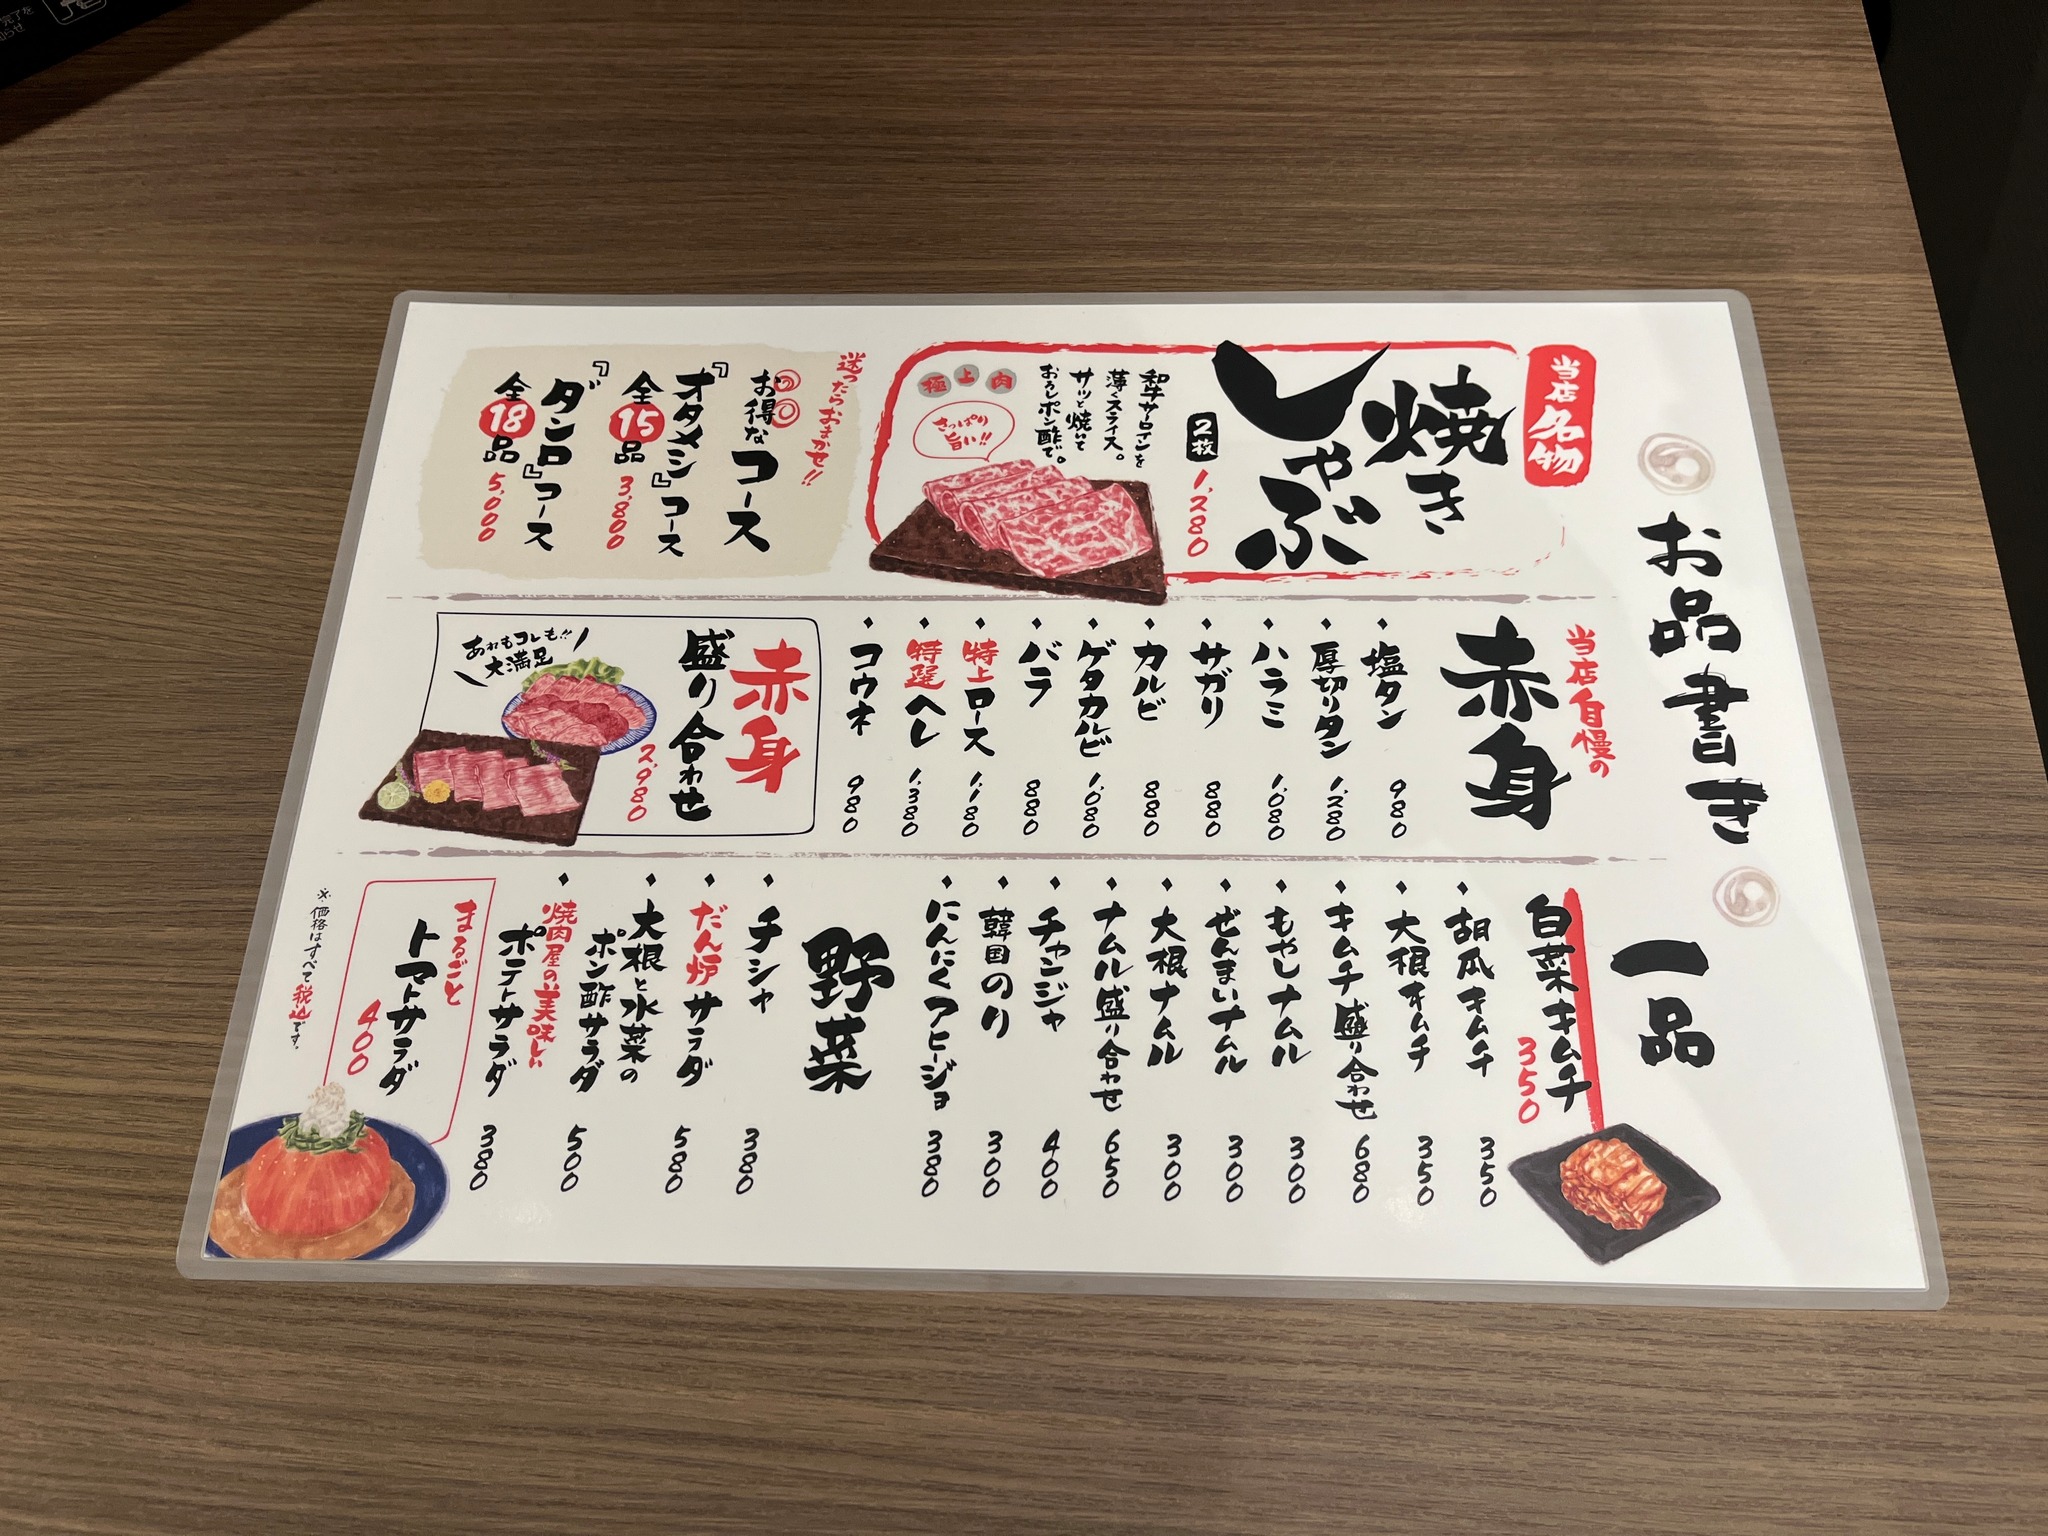 お品書き
当店名物
焼き
しゃぶ
2枚
1,280
和牛サーロインを
薄くスライス。
サッと焼いて
おろしポン酢で。
極上肉
さっぱり
旨い!!
迷ったらおまかせ!!
お得なコース
『オタメシ』コース
全15品 3,800
『ダンロ』コース
全18品 5,000
当店自慢の
赤身
塩タン 980
厚切りタン 1,280
ハラミ 1,080
サガリ 880
カルビ 880
ゲタカルビ 1,080
バラ 880
特上ロース 1,180
特選ヘレ 1,380
コウネ 980
赤身
盛り合わせ
2,980
あれもコレも!!
大満足
一品
白菜キムチ
350
胡瓜キムチ 350
大根キムチ 350
キムチ盛り合わせ 680
もやしナムル 300
ぜんまいナムル 300
大根ナムル 300
ナムル盛り合わせ 650
チャンジャ 400
韓国のり 300
にんにくアヒージョ 380
野菜
チシャ 380
だん炉サラダ 580
大根と水菜の
ポン酢サラダ 500
焼肉屋の美味しい
ポテトサラダ 380
まるごと
トマトサラダ
400
※価格はすべて税込です。